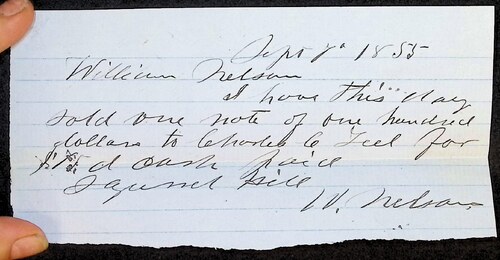 Sept 8th 1855
William Nelson
I have this day
sold one note of one hundred
dollars to Charles C Teel for
d cash paid
Squirrel Hill
W. Nelson